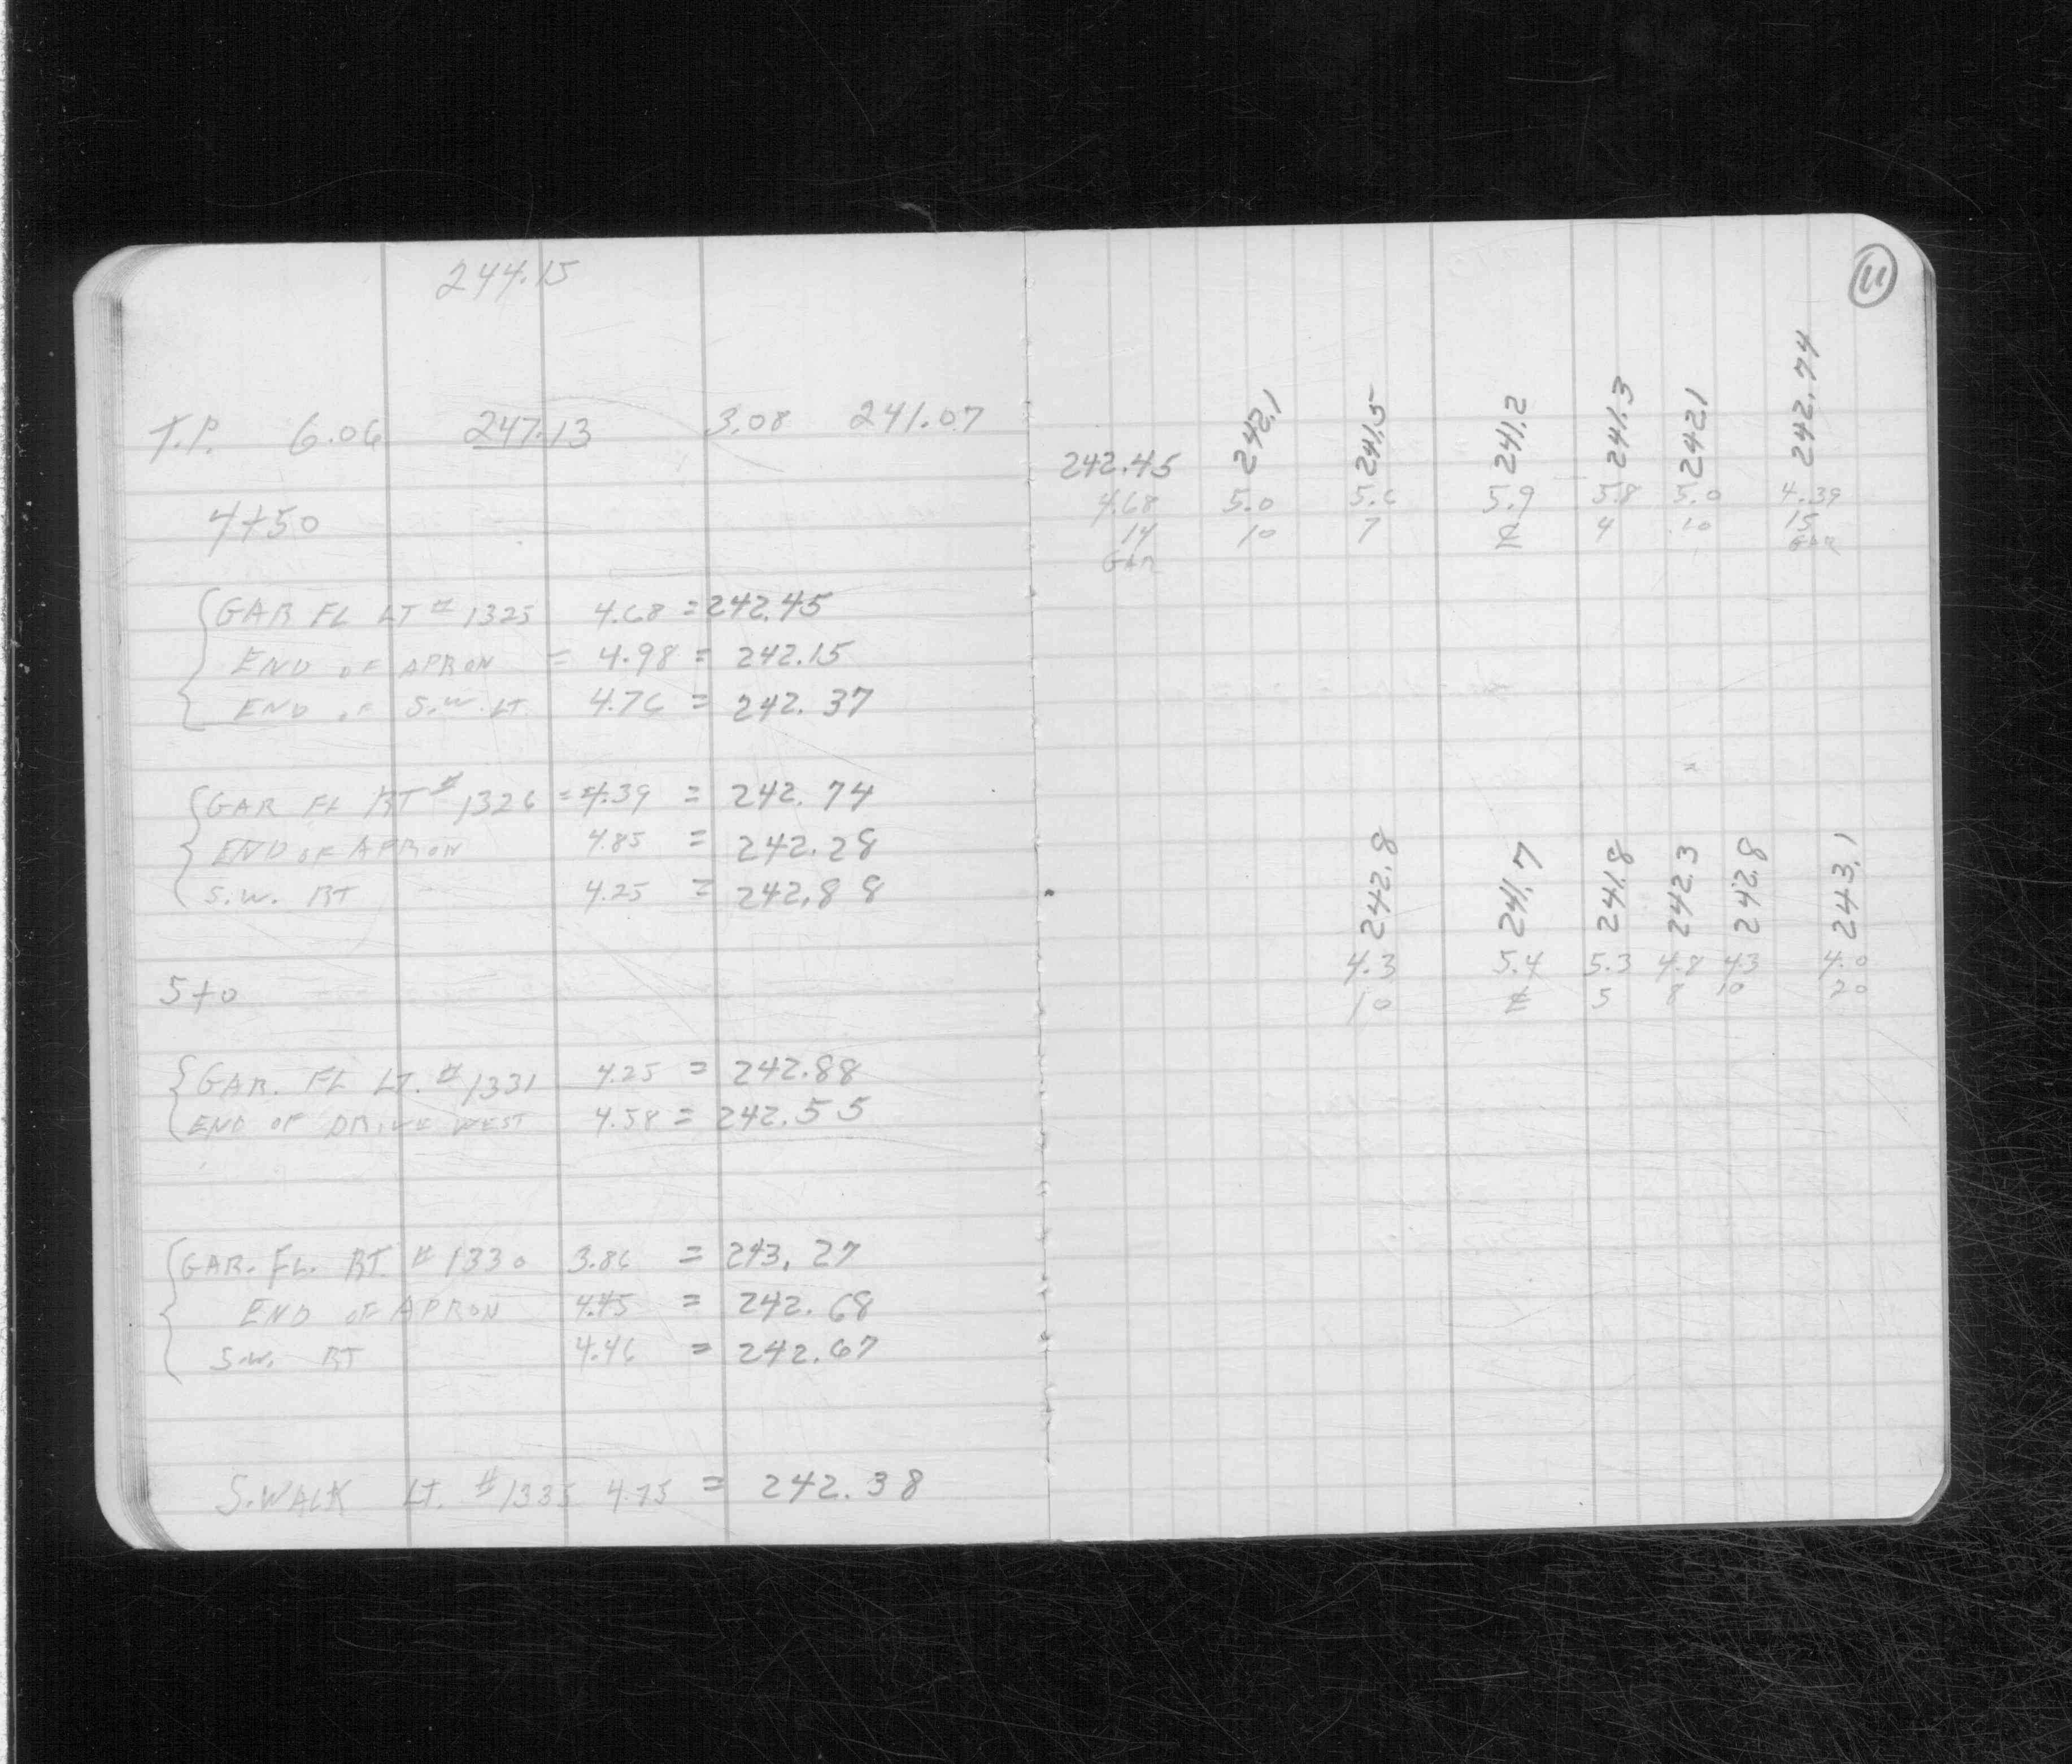 244.15
T.P. 6.06 247.13 3.08 241.07
4+50
GAR FL LT # 1325 4.68 = 242.45
END OF APRON = 4.98 = 242.15
END OF S.W. LT. 4.76 = 242.37
GAR FL RT # 1326 = 4.39 = 242.74
END OF APRON 4.85 = 242.28
S.W. RT 4.25 = 242.88
5+0
GAR. FL LT. # 1331 4.25 = 242.88
END OF DRIVE WEST 4.58 = 242.55
GAR. FL. RT. # 1330 3.86 = 243.27
END OF APRON 4.45 = 242.68
S.W. RT 4.46 = 242.67
S.WALK LT. # 1335 4.75 = 242.38
11
242.45 242.1 241.5 241.2 241.3 242.1 242.74
4.68 5.0 5.6 5.9 5.8 5.0 4.39
14 10 7 ℄ 4 10 15
GAR GAR
242.8 241.7 241.8 242.3 242.8 243.1
4.3 5.4 5.3 4.8 4.3 4.0
10 ℄ 5 8 10 20